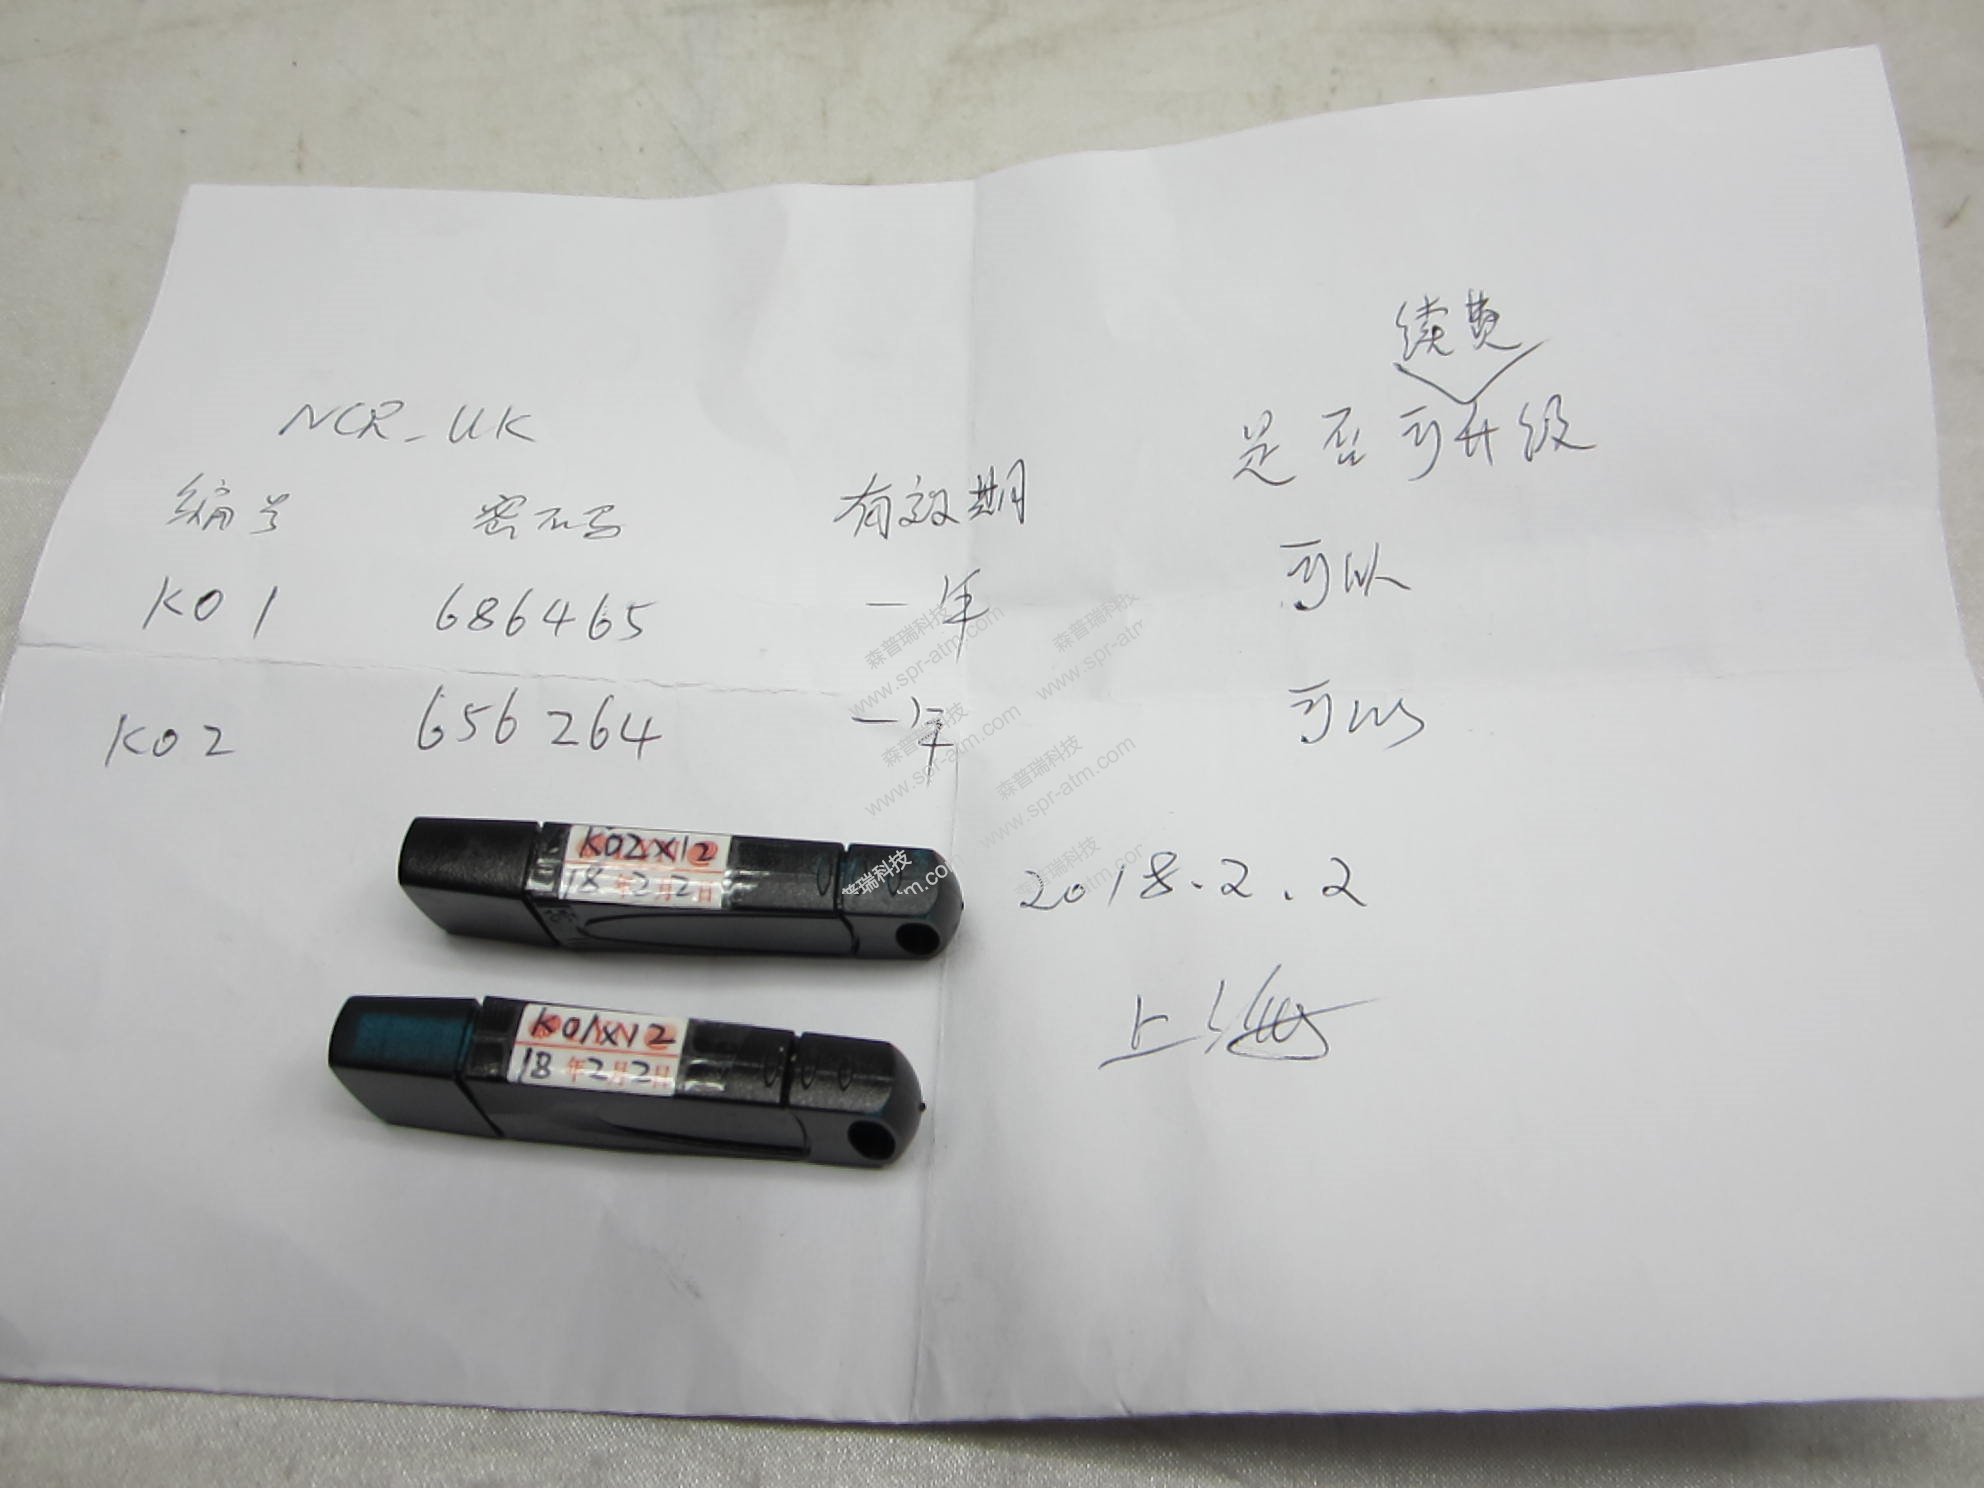 续费
是否可升级
NCR-UK
编号 密码 有效期
K01 686465 一年 可以
K02 656264 一年 可以
森普瑞科技
www.spr-atm.com
森普瑞科技
www.spr-atm.com
森普瑞科技
www.spr-atm.com
森普瑞科技
www.spr-atm.com
K02X12
18年2月2日
普瑞科技
tm.com
2018.2.2
上海
K01X12
18年2月2日